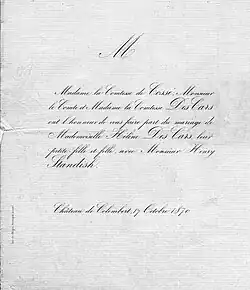 M
Madame la Comtesse de Cossé, Monsieur
le Comte et Madame la Comtesse Des Cars
ont l'honneur de vous faire part du mariage de
Mademoiselle Hélène Des Cars, leur
petite fille et fille, avec Monsieur Henry
Standish.
Château de Colembert, 17 Octobre 1870